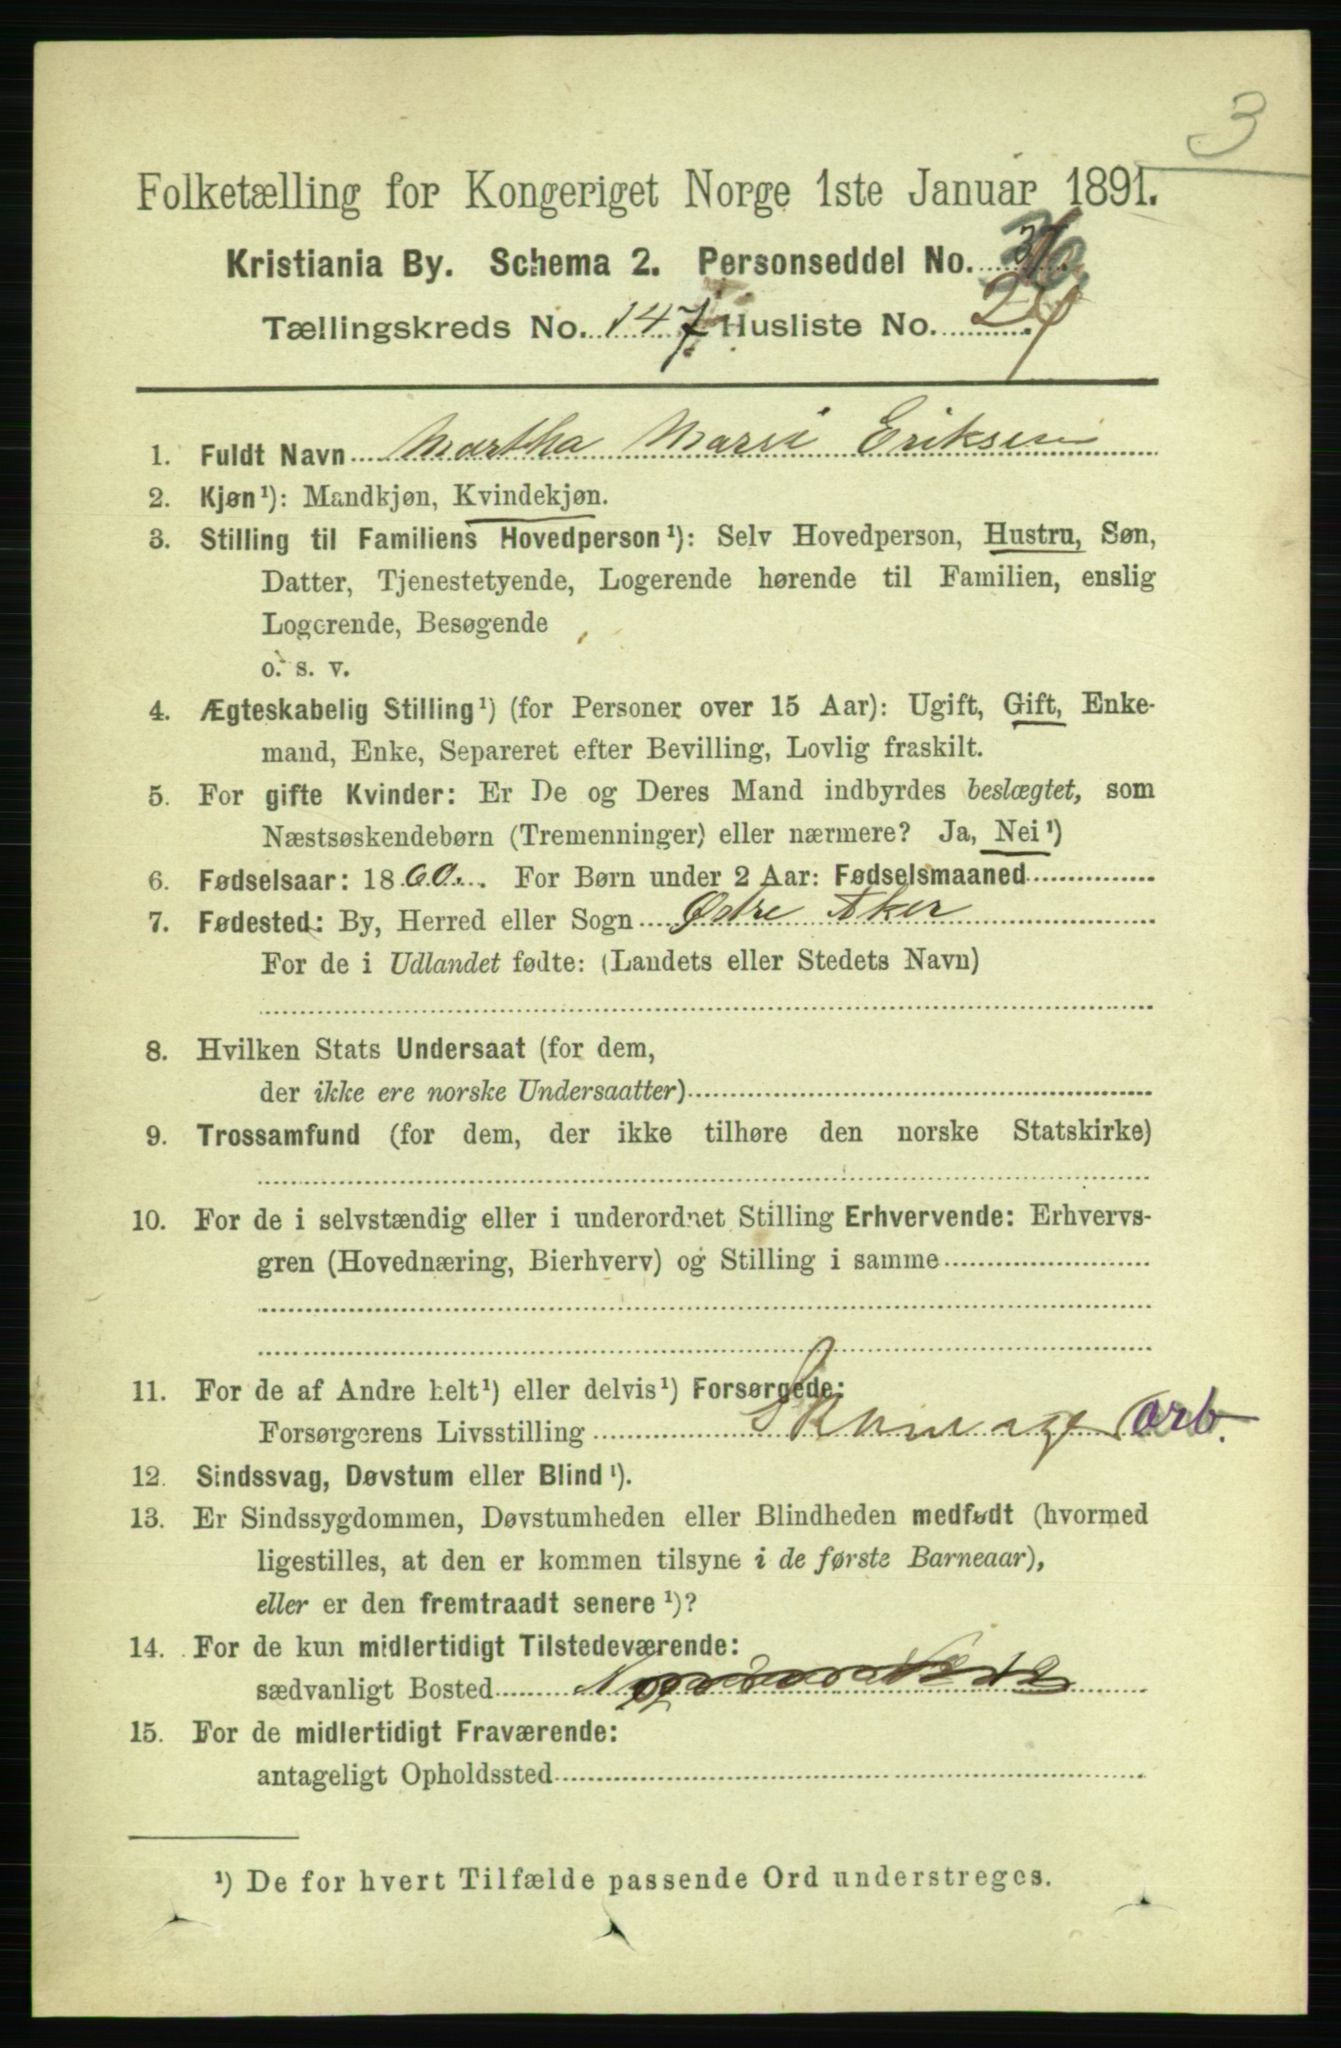 3
Folketælling for Kongeriget Norge 1ste Januar 1891.
Kristiania By. Schema 2. Personseddel No.
Tællingskreds No. 147 Husliste No. 24
1. Fuldt Navn Martha Marie Eriksen
2. Kjøn¹): Mandkjøn, Kvindekjøn.
3. Stilling til Familiens Hovedperson¹): Selv Hovedperson, Hustru, Søn,
Datter, Tjenestetyende, Logerende hørende til Familien, enslig
Logerende, Besøgende
o. s. v.
4. Ægteskabelig Stilling¹) (for Personer over 15 Aar): Ugift, Gift, Enke-
mand, Enke, Separeret efter Bevilling, Lovlig fraskilt.
5. For gifte Kvinder: Er De og Deres Mand indbyrdes beslægtet, som
Næstsøskendebørn (Tremenninger) eller nærmere? Ja, Nei¹)
6. Fødselsaar: 1860. For Børn under 2 Aar: Fødselsmaaned
7. Fødested: By, Herred eller Sogn Østre Aker
For de i Udlandet fødte: (Landets eller Stedets Navn)
8. Hvilken Stats Undersaat (for dem,
der ikke ere norske Undersaatter)
9. Trossamfund (for dem, der ikke tilhøre den norske Statskirke)
10. For de i selvstændig eller i underordnet Stilling Erhvervende: Erhvervs-
gren (Hovednæring, Bierhverv) og Stilling i samme
11. For de af Andre helt¹) eller delvis¹) Forsørgede:
Forsørgerens Livsstilling arb.
12. Sindssvag, Døvstum eller Blind¹).
13. Er Sindssygdommen, Døvstumheden eller Blindheden medfødt (hvormed
ligestilles, at den er kommen tilsyne i de første Barneaar),
eller er den fremtraadt senere¹)?
14. For de kun midlertidigt Tilstedeværende:
sædvanligt Bosted
15. For de midlertidigt Fraværende:
antageligt Opholdssted
¹) De for hvert Tilfælde passende Ord understreges.